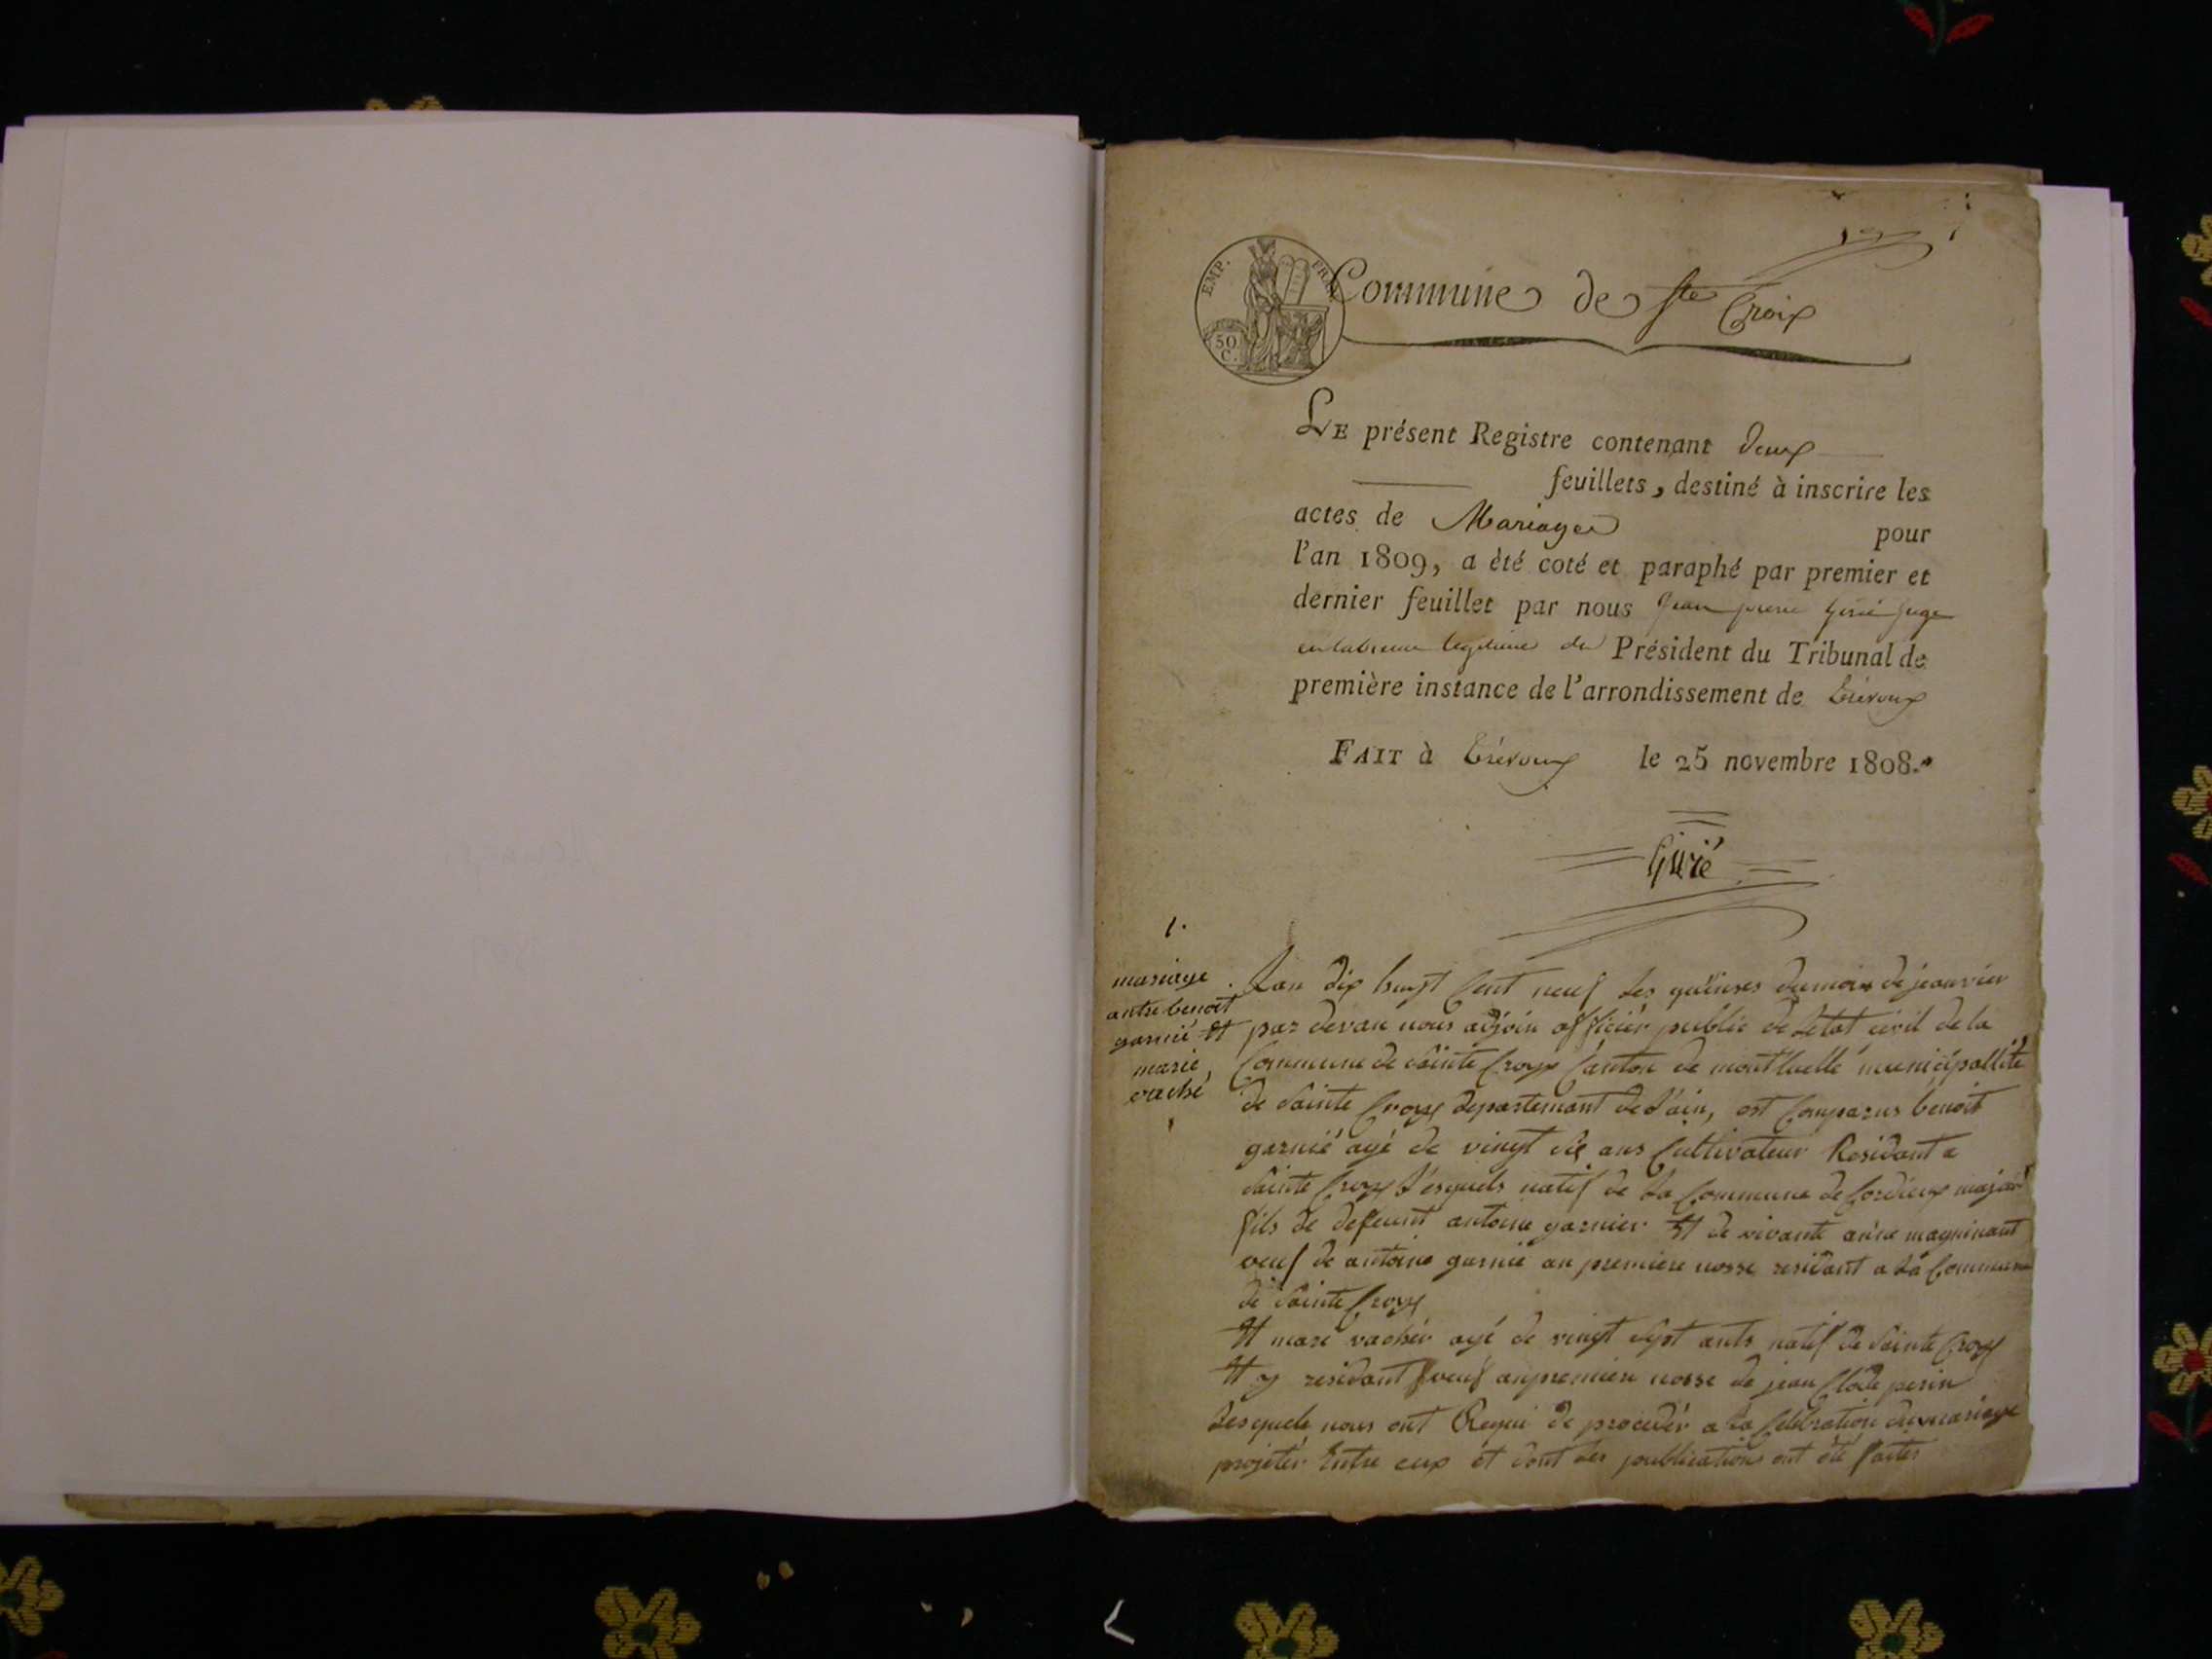 EMP. FRAN.
50 C.
Commune de Ste Croix
LE présent Registre contenant deux
feuillets, destiné à inscrire les
actes de Mariages pour
l'an 1809, a été coté et paraphé par premier et
dernier feuillet par nous Jean pierre juge
legitime du Président du Tribunal de
première instance de l'arrondissement de Trévoux
FAIT à Trévoux le 25 novembre 1808.
1.
mariage
antre benoit
garnié Et
marie
vaché
Lan dix huit Cent neuf les quinses du mois de jeanvier
par devan nous adjoin officier public de letat civil de la
Commune de Sainte Croyx Canton de montluelle municipallité
de Sainte Croyx departemant de l'ain, est Comparus benoit
garnié agé de vingt six ans Cultivateur Residant a
Sainte Croyx l'esquels natif de la Commune de Cordieux majeur
fils de deffeunt antoine garnier Et de vivante maguinant
veuf de antoine garnié an premiere nosse residant a la Commune
de Sainte Croyx
Et mari vachér agé de vingt sept ants natif de Sainte Croyx
Et y residant veuf anpremiere nosse de jean Clode perin
Lesquels nous ont Requi de procedér a la Celebration du mariage
projetér Entre eux et dont les publications ont été faites